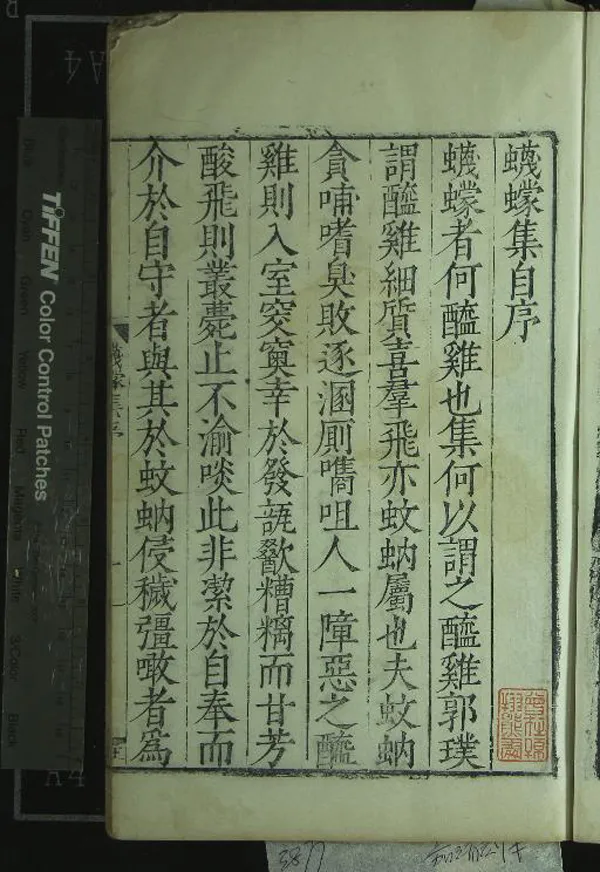 蠛蠓集自序
蠛蠓者何醯雞也集何以謂之醯雞郭璞
謂醯雞細質喜羣飛亦蚊蚋屬也夫蚊蚋
貪哺嗜臭敗逐溷厠噆咀人一嘷惡之醯
雞則入室穾窠幸於發瓿歠糟糟而甘芳
酸飛則叢甍止不渝啖此非潔於自奉而
介於自守者與其於蚊蚋侵穢彊噉者爲
蠛蠓集序
一
TIFFEN Color Control Patches
Cyan
Green
Yellow
Red
Magenta
White
3/Color
Black
A4
A4
3877